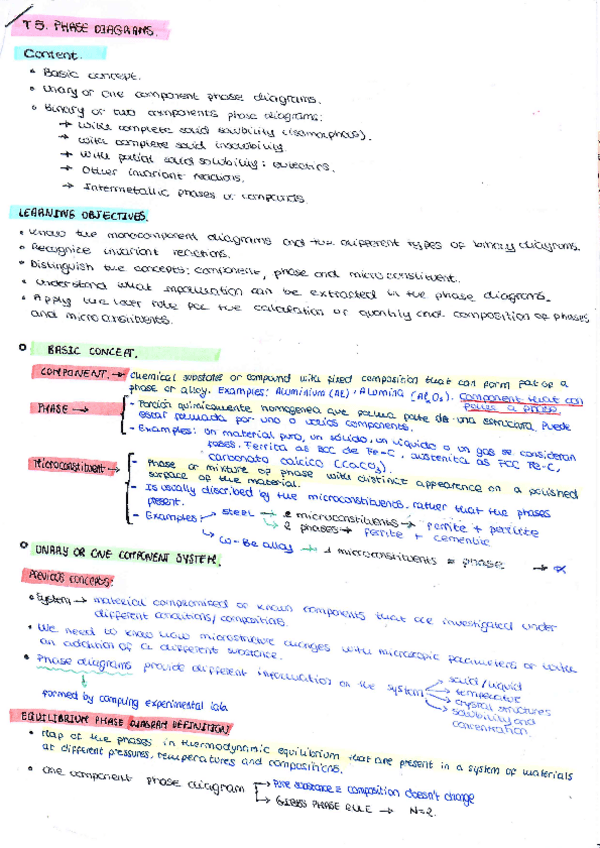 T5. PHASE DIAGRAMS.
Content.
• Basic concept.
• Unary or one component phase diagrams.
• Binary or two components phase diagrams:
→ With complete solid solubility (isomorphous).
→ with complete solid insolubility.
→ With partial solid solubility: eutectics.
→ Other invariant reactions.
→ Intermetallic phases or compounds.
LEARNING OBJECTIVES.
• Know the monocomponent diagrams and the different types of binary diagrams.
• Recognize invariant reactions.
• Distinguish the concepts: component, phase and microconstituent.
• Understand what information can be extracted in the phase diagrams.
• Apply the lever rule for the calculation of quantity and composition of phases
and microconstituents.
BASIC CONCEPT.
COMPONENT. → Chemical substance or compound with fixed composition that can form part of a
phase or alloy. Examples: Aluminium (Al), Alumina (Al2O3). Component that can
form a phase
PHASE → - Porción químicamente homogénea que forma parte de una estructura. Puede
estar formada por uno o varios componentes.
- Examples: un material puro, un sólido, un líquido o un gas se consideran
fases. Ferrita as BCC de Fe-C, austenita as FCC Fe-C,
carbonato cálcico (CaCO3).
Microconstituent → - Phase or mixture of phase with distinct appearance on a polished
surface of the material.
- Is usually discribed by the microconstituents, rather that the phases
present.
- Examples: steel → 2 microconstituents → ferrite + perlite
2 phases → ferrite + cementite
Cu-Be alloy → 1 microconstituents = phase → α
UNARY OR ONE COMPONENT SYSTEM.
PREVIOUS CONCEPTS:
• System → material compromised of known components that are investigated under
different conditions/compositions.
• We need to know how microstructure changes with microscopic parameters or with
an addition of a different substance.
• Phase diagrams provide different information on the system
solid/liquid
temperature
crystal structures
solubility and
concentration.
formed by compling experimental data
EQUILIBRIUM PHASE DIAGRAM DEFINITION:
• Map of the phases in thermodynamic equilibrium that are present in a system of materials
at different pressures, temperatures and compositions.
• One component phase diagram → Pure substance = composition doesn't change
→ GIBBS PHASE RULE → N=2.